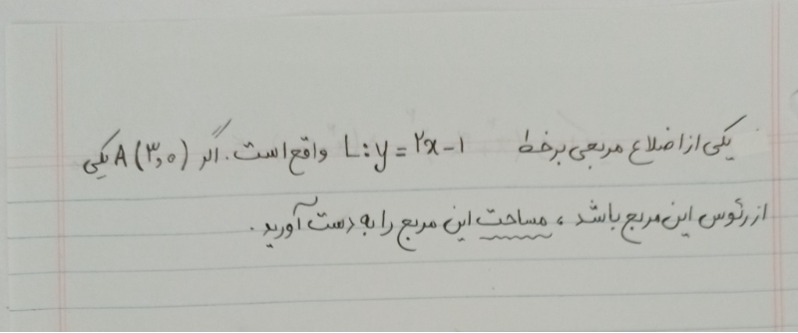 یکی از اضلاع مربعی برخط L: y = ۲x - ۱ واقع است. اگر A(۳,۰) یکی
از رئوس این مربع باشد، مساحت این مربع را به دست آورید.